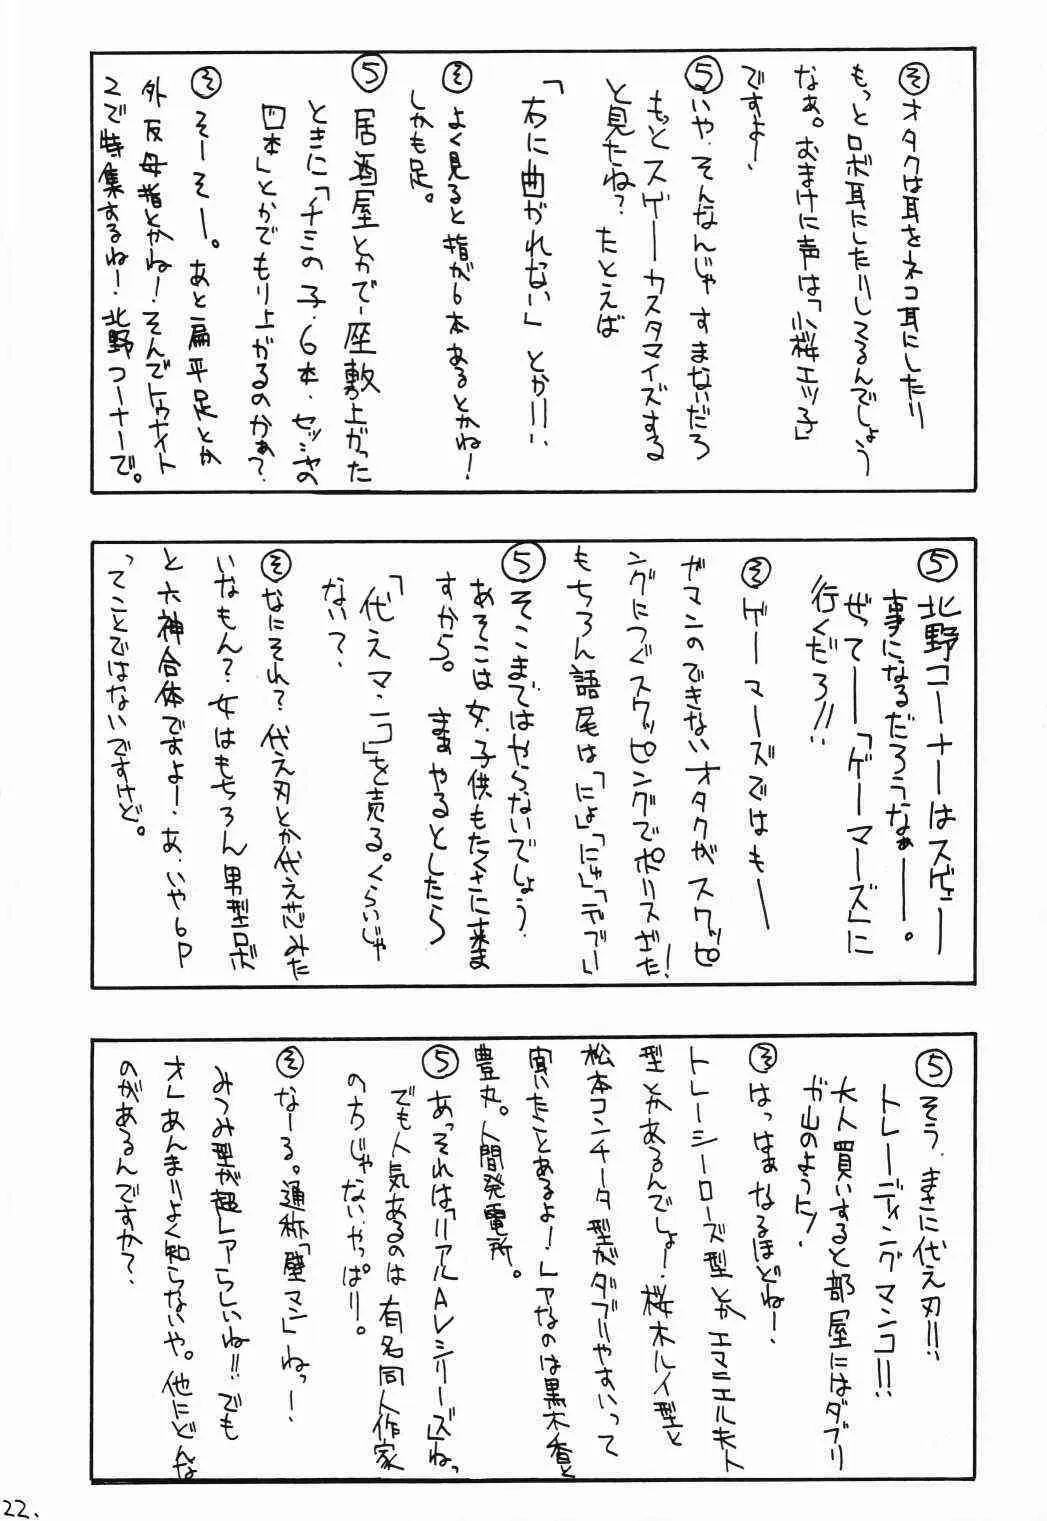 そ オタクは耳をネコ耳にしたり
もっとロボ耳にしたりしてるんでしょう
なぁ。おまけに声は「小桜エツ子」
ですよー、
5 いや、そんなんじゃすまないだろ
もっとスゲーカスタマイズする
と見たね？たとえば
「右に曲がれない」とか!!、
そ よく見ると指が6本あるとかね！
しかも足。
5 居酒屋とかで座敷上がった
ときに「チミの子、6本、セッシャの
四本」とかでもり上がるのかぁ？
そ そーそー。あと扁平足とか
外反母指とかね！そんでトゥナイト
2で特集するね！北野コーナーで。
5 北野コーナーはスゲー
事になるだろうなぁー。
ぜってー「ゲーマーズ」に
行くだろ!!
そ ゲーマーズではもー
ガマンのできないオタクがスワッピ
ングにつぐスワッピングでポリスざた！
もちろん語尾は「にょ」「にゃ」「でぶー」
5 そこまではやらないでしょう、
あそこは女、子供もたくさん来ま
すから。まぁやるとしたら
「代えマンコ」を売る。くらいじゃ
ない？、
そ なにそれ？代え刃とか代え芯みた
いなもん？女はもちろん男型ロボ
と六神合体ですよー、あ、いや6P
ってことではないですけど。
5 そう、まさに代え刃!!
トレーディングマンコ!!
大人買いすると部屋にはダブリ
が山のように！
そ はっはぁなるほどねー、
トレーシーローズ型とかエマニエル夫人
型とかあるんでしょー、桜木ルイ型と
松本コンチータ型がダブリやすいって
聞いたことあるよー！レアなのは黒木香と
豊丸。人間発電所。
5 あっそれは「リアルAVシリーズ」ねっ
でも人気あるのは有名同人作家
の方じゃない、やっぱり。
そ なーる。通称「壁マン」ねっー、
みつみ型が超レアらしいね!!でも
オレあんまりよく知らないや。他にどんな
のがあるんですか？、
22.